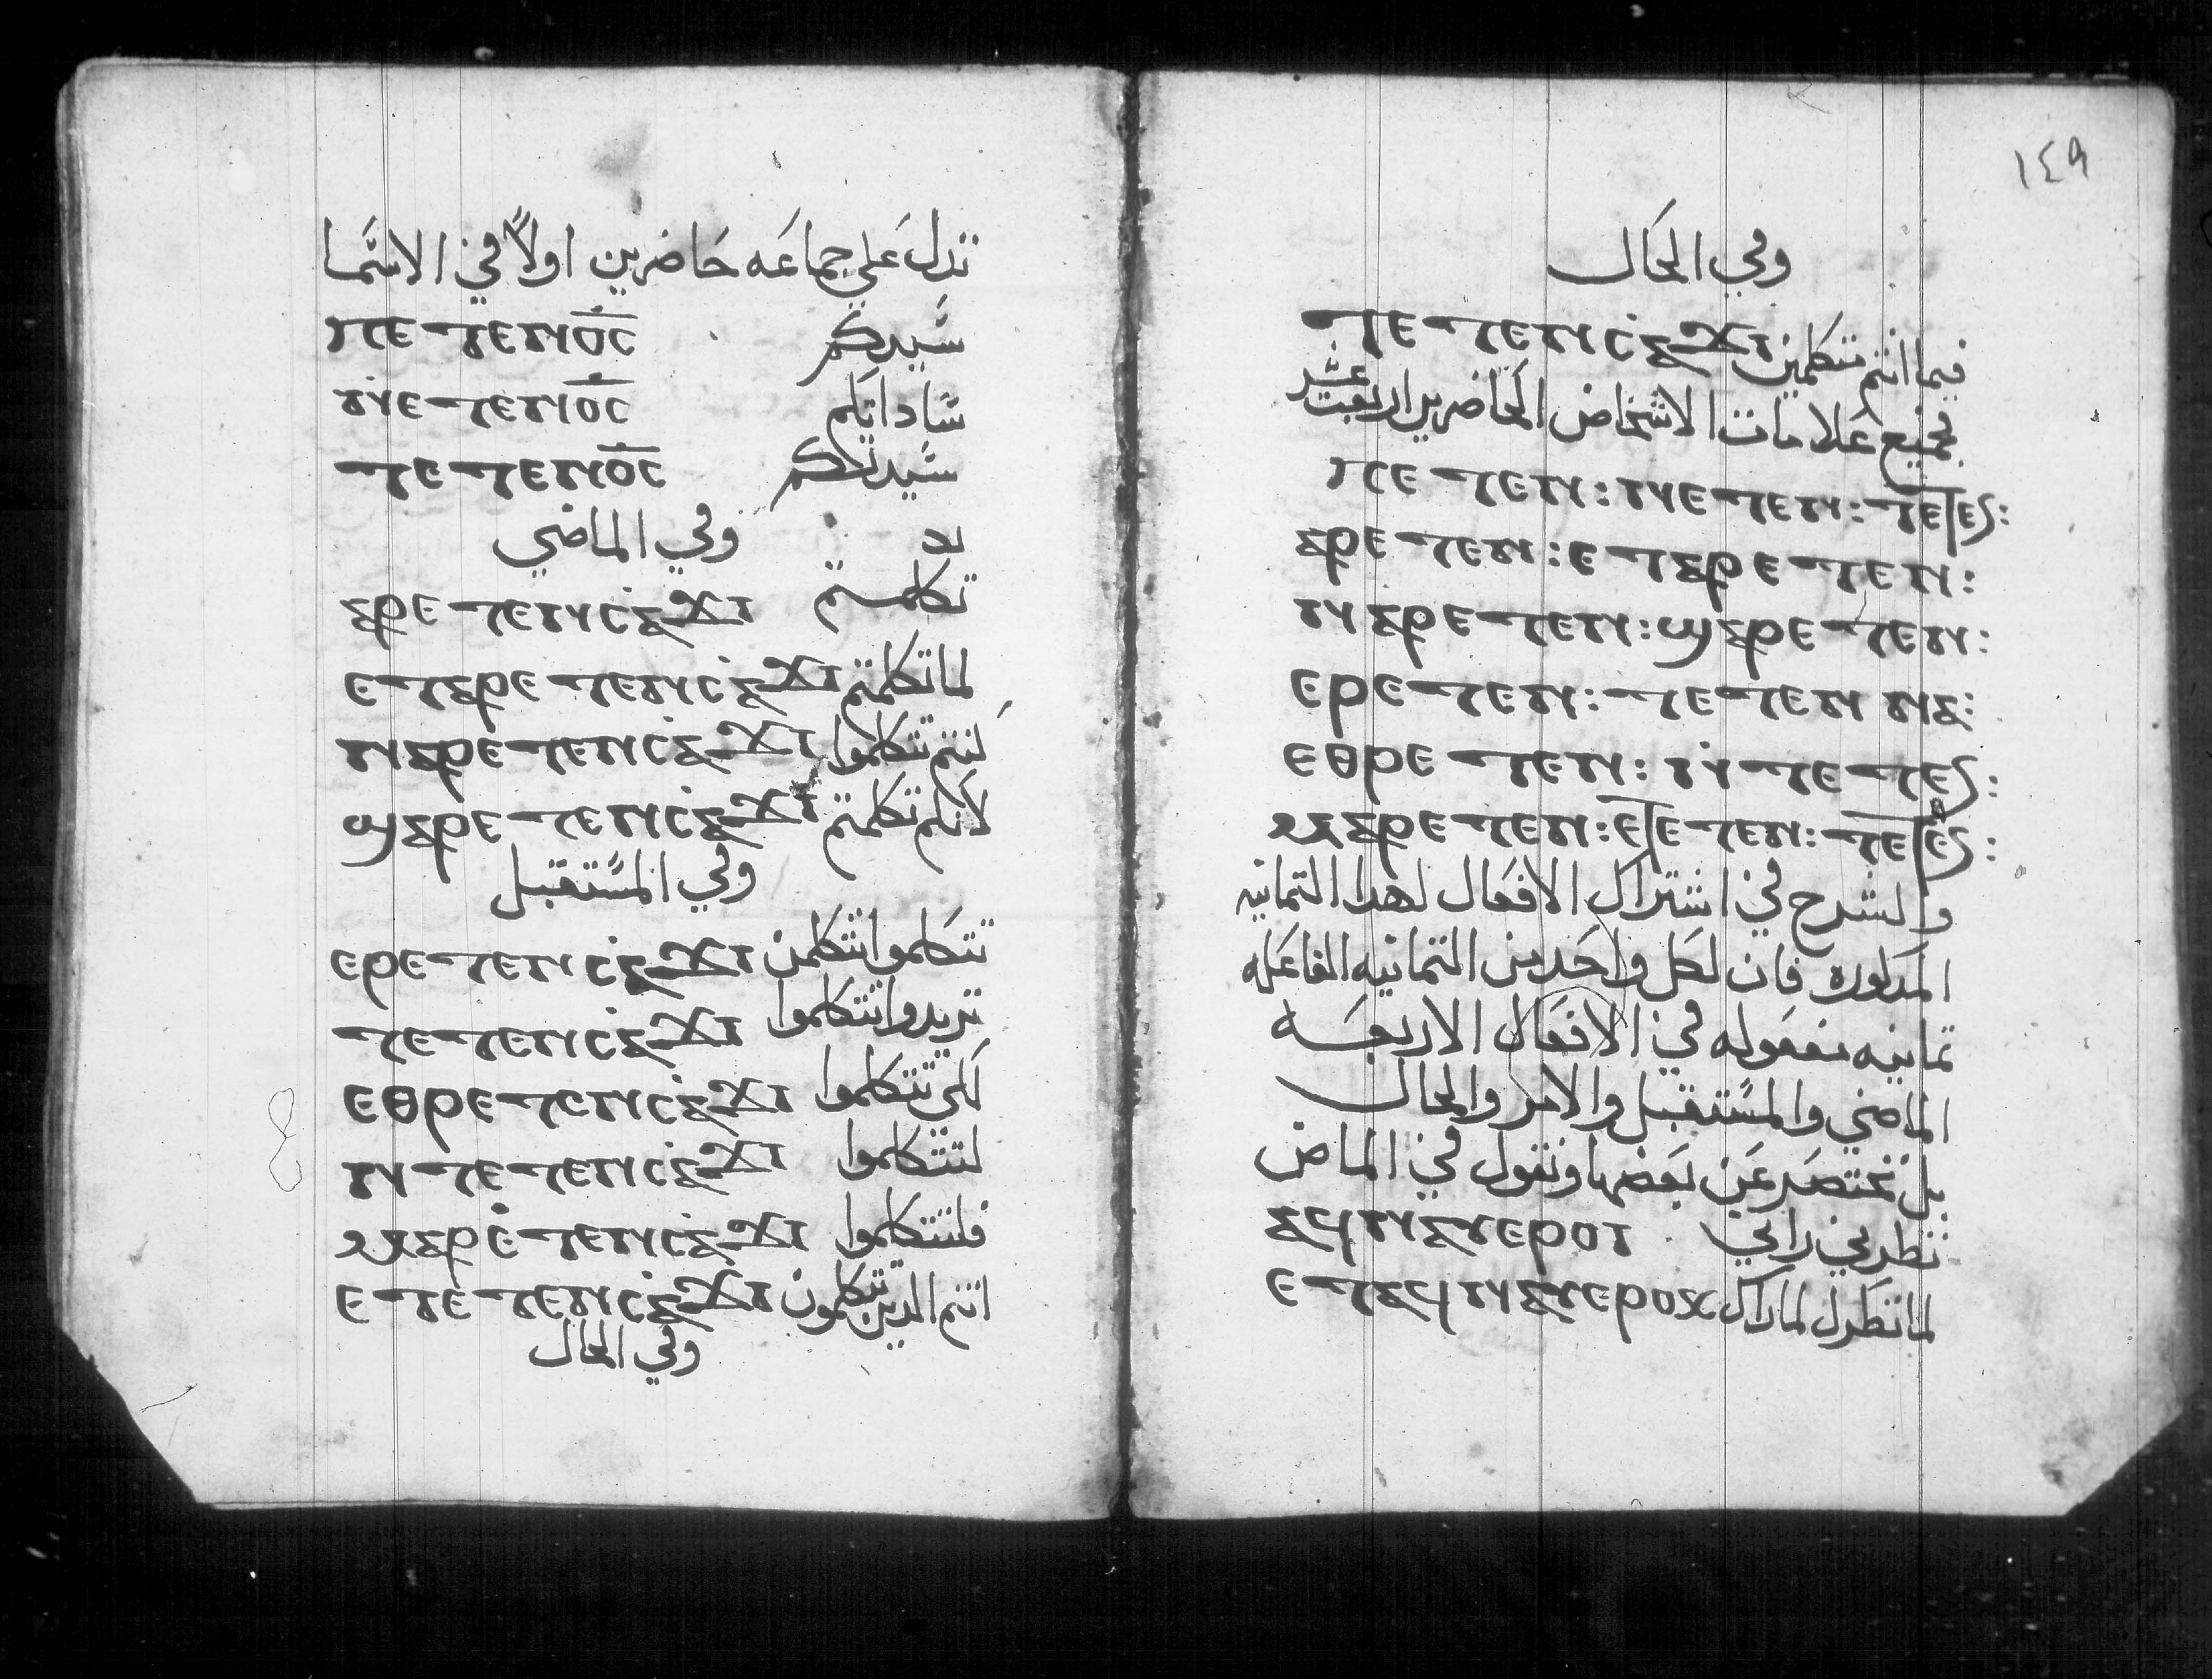 تدل علي جماعه حاضرين اولاً في الاسما
ⲡⲉⲧⲉⲛⲟ̅ⲥ̅ سيدكم
ⲛ̇ⲉⲧⲉⲛⲟ̅ⲥ̅ ساداتكم
ⲧⲉⲧⲉⲛⲟ̅ⲥ̅ سيدتكم
وفي الماضي
ⲁⲣⲉⲧⲉⲛⲥ̇ⲁϫⲓ تكلمتم
ⲉⲧⲁⲣⲉⲧⲉⲛⲥ̇ⲁϫⲓ لما تكلمتم
ⲛⲁⲣⲉⲧⲉⲛⲥ̇ⲁϫⲓ كنتم تتكلموا
ϣⲁⲣⲉⲧⲉⲛⲥ̇ⲁϫⲓ لانكم تكلمتم
وفي المستقبل
ⲉⲣⲉⲧⲉⲛⲥ̇ⲁϫⲓ تتكلموا تتكلمن
ⲧⲉⲧⲉⲛⲥ̇ⲁϫⲓ تريدوا تتكلموا
ⲉⲑⲣⲉⲧⲉⲛⲥ̇ⲁϫⲓ لكي تتكلموا
ⲛⲧⲉⲧⲉⲛⲥ̇ⲁϫⲓ لتتكلموا
ⲙⲁⲣⲉ̇ⲧⲉⲛⲥ̇ⲁϫⲓ فلتتكلموا
ⲉⲧⲉⲧⲉⲛⲥ̇ⲁϫⲓ انتم الدين تتكلمون
وفي الحال
١٤٩
وفي الحال
ⲧⲉⲧⲉⲛⲥ̇ⲁϫⲓ فيما انتم متكلمين
فجميع علامات الاشخاص الحاضرين اربعت عشر
ⲡⲉⲧⲉⲛ: ⲛⲉⲧⲉⲛ: ⲧⲉⲧⲉⲛ:
ⲁⲣⲉⲧⲉⲛ: ⲉⲧⲁⲣⲉⲧⲉⲛ:
ⲛⲁⲣⲉⲧⲉⲛ: ϣⲁⲣⲉⲧⲉⲛ:
ⲉⲣⲉⲧⲉⲛ: ⲧⲉⲧⲉⲛⲛⲁ:
ⲉⲑⲣⲉⲧⲉⲛ: ⲛ̇ⲧⲉⲧⲉⲛ:
ⲙⲁⲣⲉⲧⲉⲛ: ⲉⲧⲉⲧⲉⲛ: ⲧⲉⲧⲉⲛ:
والشرح في اشتراك الافعال لهدا التمانيه
المدكوره فان لكل واحد من التمانيه الفاعله
تمانيه مفعوله في الافعال الاربعه
الماضي والمستقبل والامر والحال
بل نختصر عن بعضها ونقول في الماض
ⲁϥⲛⲁⲩⲉⲣⲟⲓ نظرني راني
ⲉⲧⲁϥⲛⲁⲩⲉⲣⲟⲕ لما نظرك لما راك